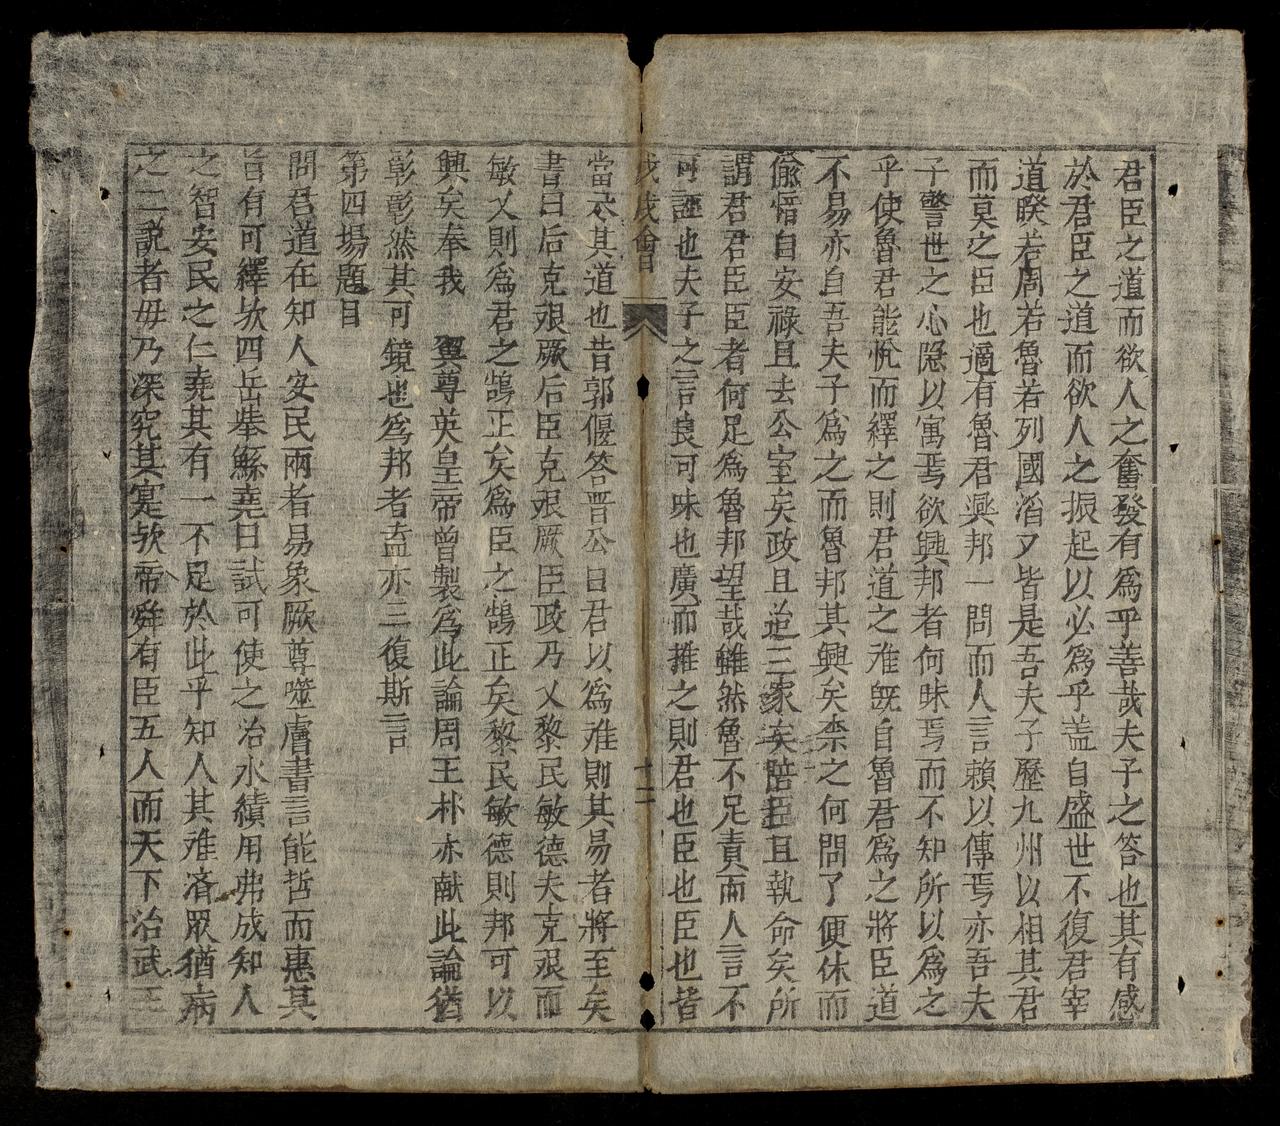 君臣之道而欲人之奮發有為乎善哉夫子之答也其有感
於君臣之道而欲人之振起以必為乎盖自盛世不復君宰
道睽若周若魯若列國滔又皆是吾夫子歷九州以相其君
而莫之臣也適有魯君興邦一問而人言賴以傳焉亦吾夫
子警世之心隱以寓焉欲興邦者何昧焉而不知所以為之
乎使魯君能悅而繹之則君道之难既自魯君為之將臣道
不易亦自吾夫子為之而魯邦其興矣柰之何問了便休而
偸惰自安祿且去公室矣政且逮三家矣陪臣且執命矣所
謂君君臣臣者何足為魯邦望哉雖然魯不足責而人言不
可誣也夫子之言良可味也廣而推之則君也臣也臣也皆
戊戌會 十二
當尽其道也昔郭偃答晋公曰君以為难則其易者將至矣
書曰后克艰厥后臣克艰厥臣政乃乂黎民敏德夫克艰而
敏乂則為君之鵠正矣為臣之鵠正矣黎民敏德則邦可以
興矣奉我 聖尊英皇帝曾製為此論周王朴亦献此論猶
彰彰然其可鏡也為邦者盍亦三復斯言
第四場題目
問君道在知人安民兩者易象厥尊噬膚書言能哲而惠其
旨有可繹欤四岳舉鯀堯曰試可使之治水績用弗成知人
之智安民之仁堯其有一不足於此乎知人其难済眾猶病
之二說者毋乃深究其寔欤帝舜有臣五人而天下治武王